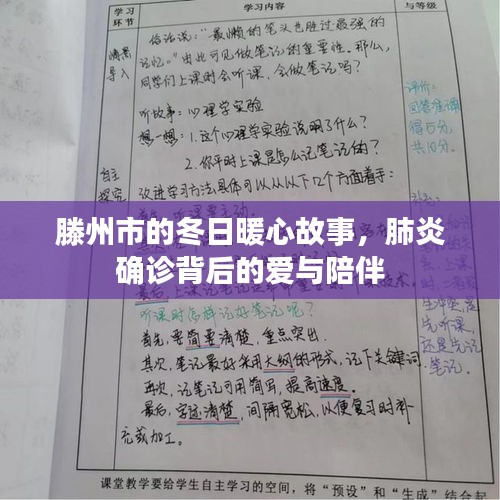 学习
环节
学习内容
与等级
情景
导入
俗话说：“最懒的笔头也胜过最强的
记忆。”由此可见做笔记的重要性。那么，
同学们上课时会听课，会做笔记吗？
评价：
回答准确
得5分，
共10分。
听故事：心理学实验
想一想：1.这个心理学实验说明了什么？
2.你平时上课是怎么记笔记的？
自主
探究
改进学习方法具体可以从以下2个方面着手：
滕州市的冬日暖心故事，肺炎
确诊背后的爱与陪伴
听课时怎样记好笔记呢？
首先，要简要清楚，重点突出.
其次，笔记最好采用大纲的形式，记下关键词
再次，记笔记可用简写，提高速度。
最后，字迹清楚，间隔宽松，以便复习时补
充或加工。
先听课，
还是先记
笔记.
课堂教学要给学生自主学习的空间，将“预设”和“生成”结合起